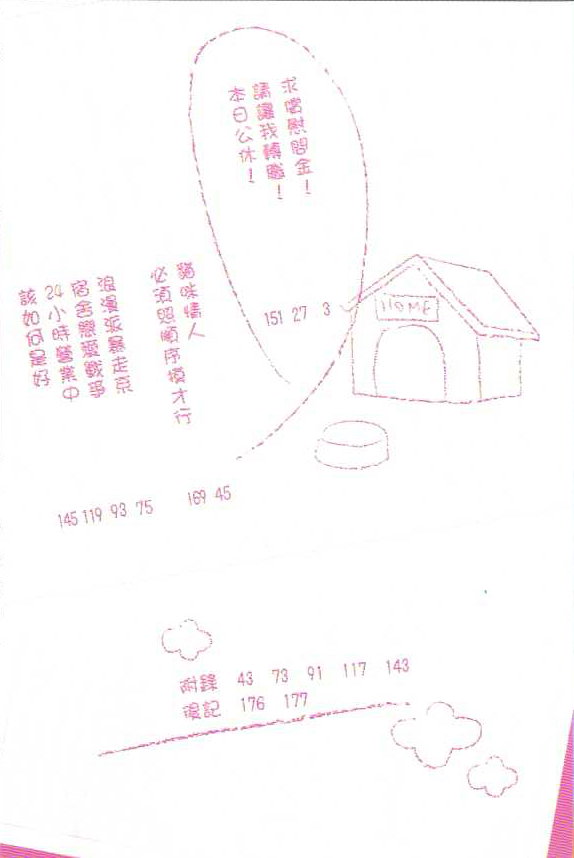 求償慰問金！
請讓我轉職！
本日公休！
3
27
151
HOME
貓咪情人
必須照順序摸才行
45
169
浪漫派暴走京
宿舍戀愛戰爭
24小時營業中
該如何是好
75
93
119
145
附錄 43 73 91 117 143
後記 176 177